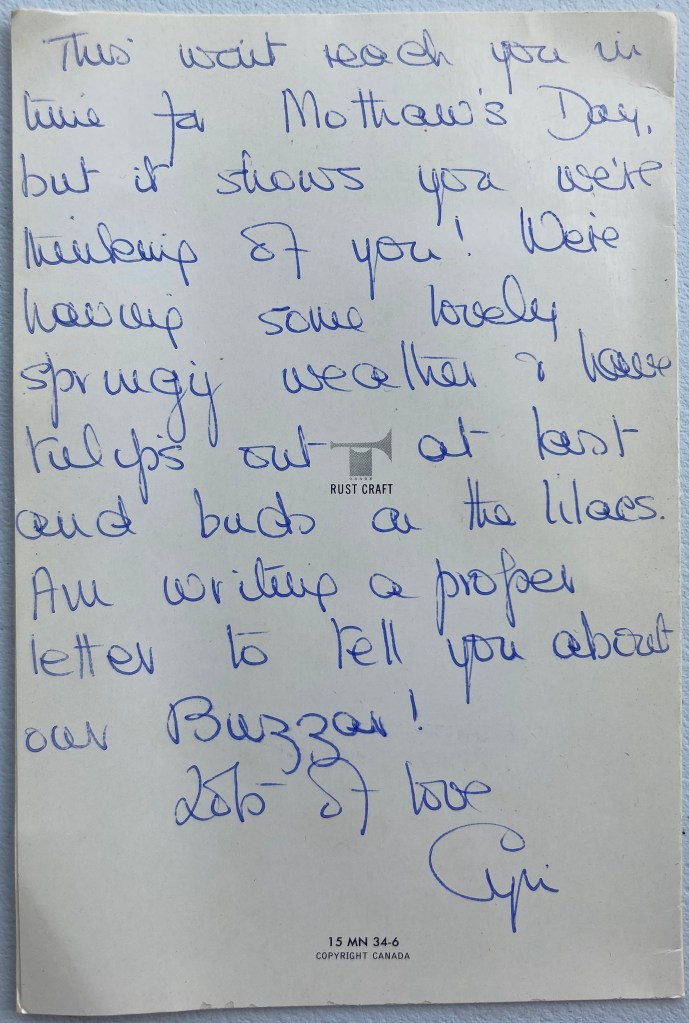 This won't reach you in
time for Mothaw's Day,
but it shows you we're
thinking of you! We're
having some lovely
springy weather & have
tulips out at last
RUST CRAFT
and buds on the lilacs.
Am writing a proper
letter to tell you about
our Buzzar!
Lots of love
15 MN 34-6
COPYRIGHT CANADA